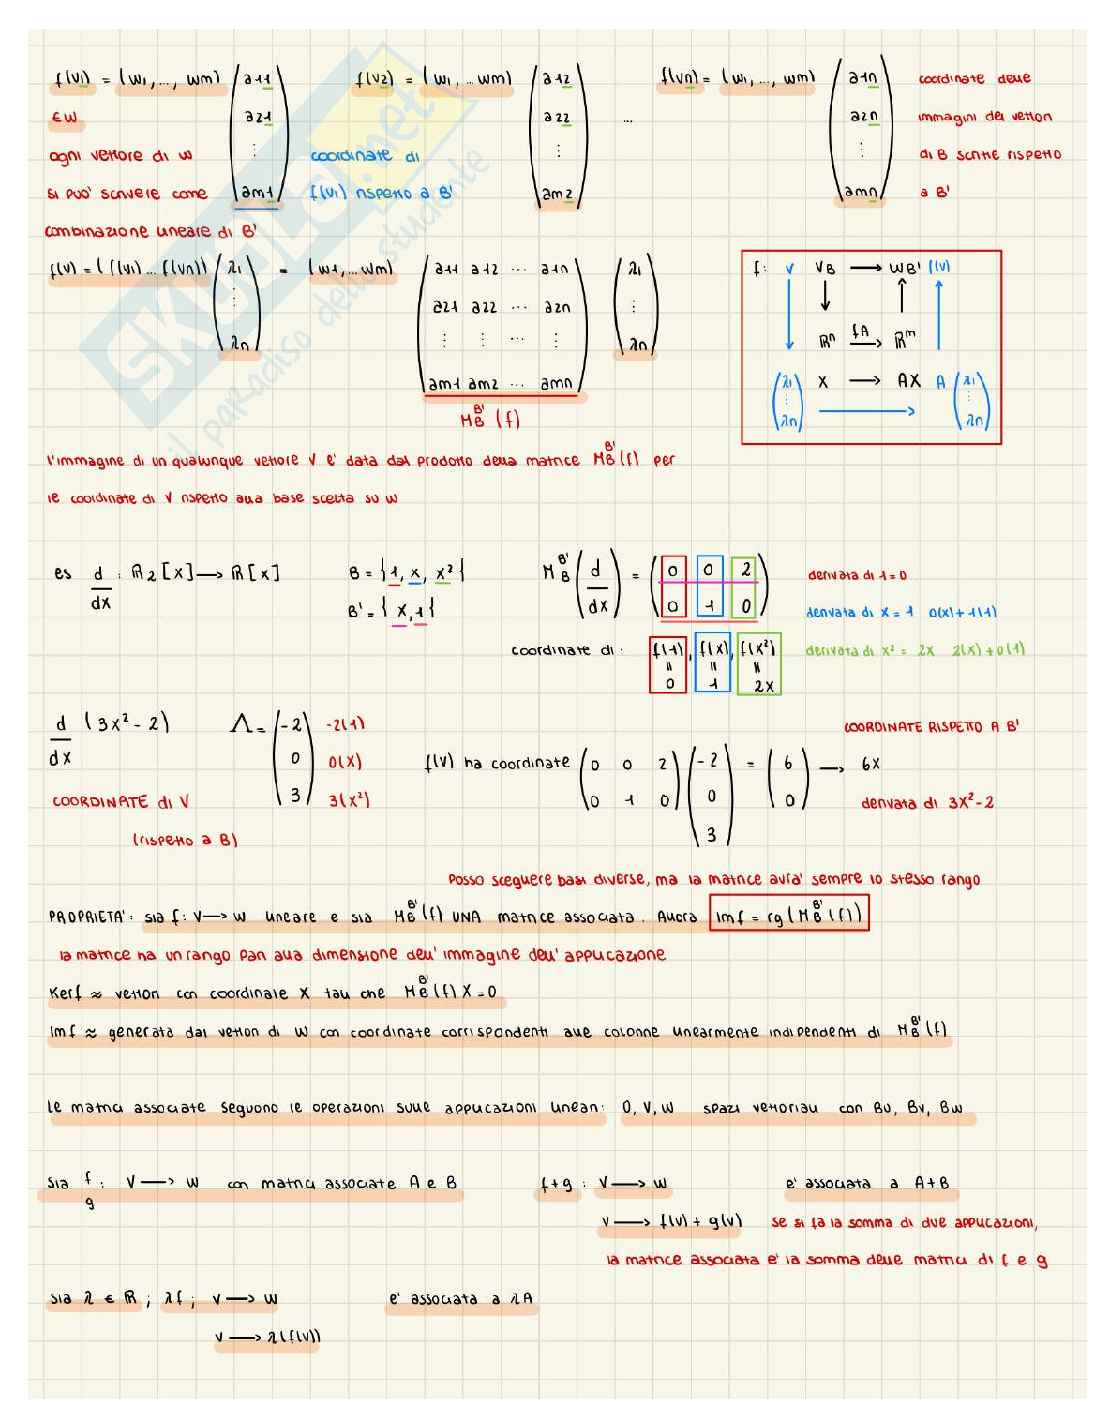 f(v1) = (w1, ..., wm) (a11 a21 ⋮ am1) f(v2) = (w1, ... wm) (a12 a22 ⋮ am2) ... f(vn) = (w1, ..., wm) (a1n a2n ⋮ amn) coordinate delle
∈ W immagini dei vettori
ogni vettore di W coordinate di di B scritte rispetto
si puo' scrivere come f(v1) rispetto a B' a B'
combinazione lineare di B'
f(v) = (f(v1) ... f(vn)) (λ1 ⋮ λn) = (w1, ... wm) (a11 a12 ... a1n
a21 a22 ... a2n
⋮ ⋮ ... ⋮
am1 am2 ... amn) (λ1 ⋮ λn)
M B B' (f)
f: V VB → WB' f(v)
ℝⁿ fA → ℝᵐ
(λ1 ⋮ λn) X → AX A (λ1 ⋮ λn)
l'immagine di un qualunque vettore v e' data dal prodotto della matrice M B B' (f) per
le coordinate di v rispetto alla base scelta su W
es d/dx : ℝ2[x] → ℝ[x] B = {1, x, x²} M B B' (d/dx) = (0 0 2
0 1 0) derivata di 1 = 0
B' = {x, 1} derivata di x = 1 0(x) + 1(1)
coordinate di: f(1), f(x), f(x²) derivata di x² = 2x 2(x) + 0(1)
= = =
0 1 2x
d/dx (3x² - 2) Λ = (-2 0 3) -2(1) COORDINATE RISPETTO A B'
0(x) f(v) ha coordinate (0 0 2
0 1 0) (-2 0 3) = (6 0) → 6x
COORDINATE di V 3(x²) derivata di 3x² - 2
(rispetto a B)
Posso scegliere basi diverse, ma la matrice avra' sempre lo stesso rango
PROPRIETA': sia f: V → W lineare e sia M B B' (f) UNA matrice associata. Allora Imf = rg (M B B' (f))
la matrice ha un rango pari alla dimensione dell'immagine dell'applicazione
Kerf ≈ vettori con coordinate X tali che M B B' (f) X = 0
Imf ≈ generata dai vettori di W con coordinate corrispondenti alle colonne linearmente indipendenti di M B B' (f)
le matrici associate seguono le operazioni sulle applicazioni lineari: U, V, W spazi vettoriali con Bu, Bv, Bw
sia f g : V → W con matrici associate A e B f+g : V → W e' associata a A+B
v → f(v) + g(v) se si fa la somma di due applicazioni,
la matrice associata e' la somma delle matrici di f e g
sia λ ∈ ℝ ; λf ; V → W e' associata a λA
v → λ(f(v))
SKUOLA.net
il paradiso dello studente